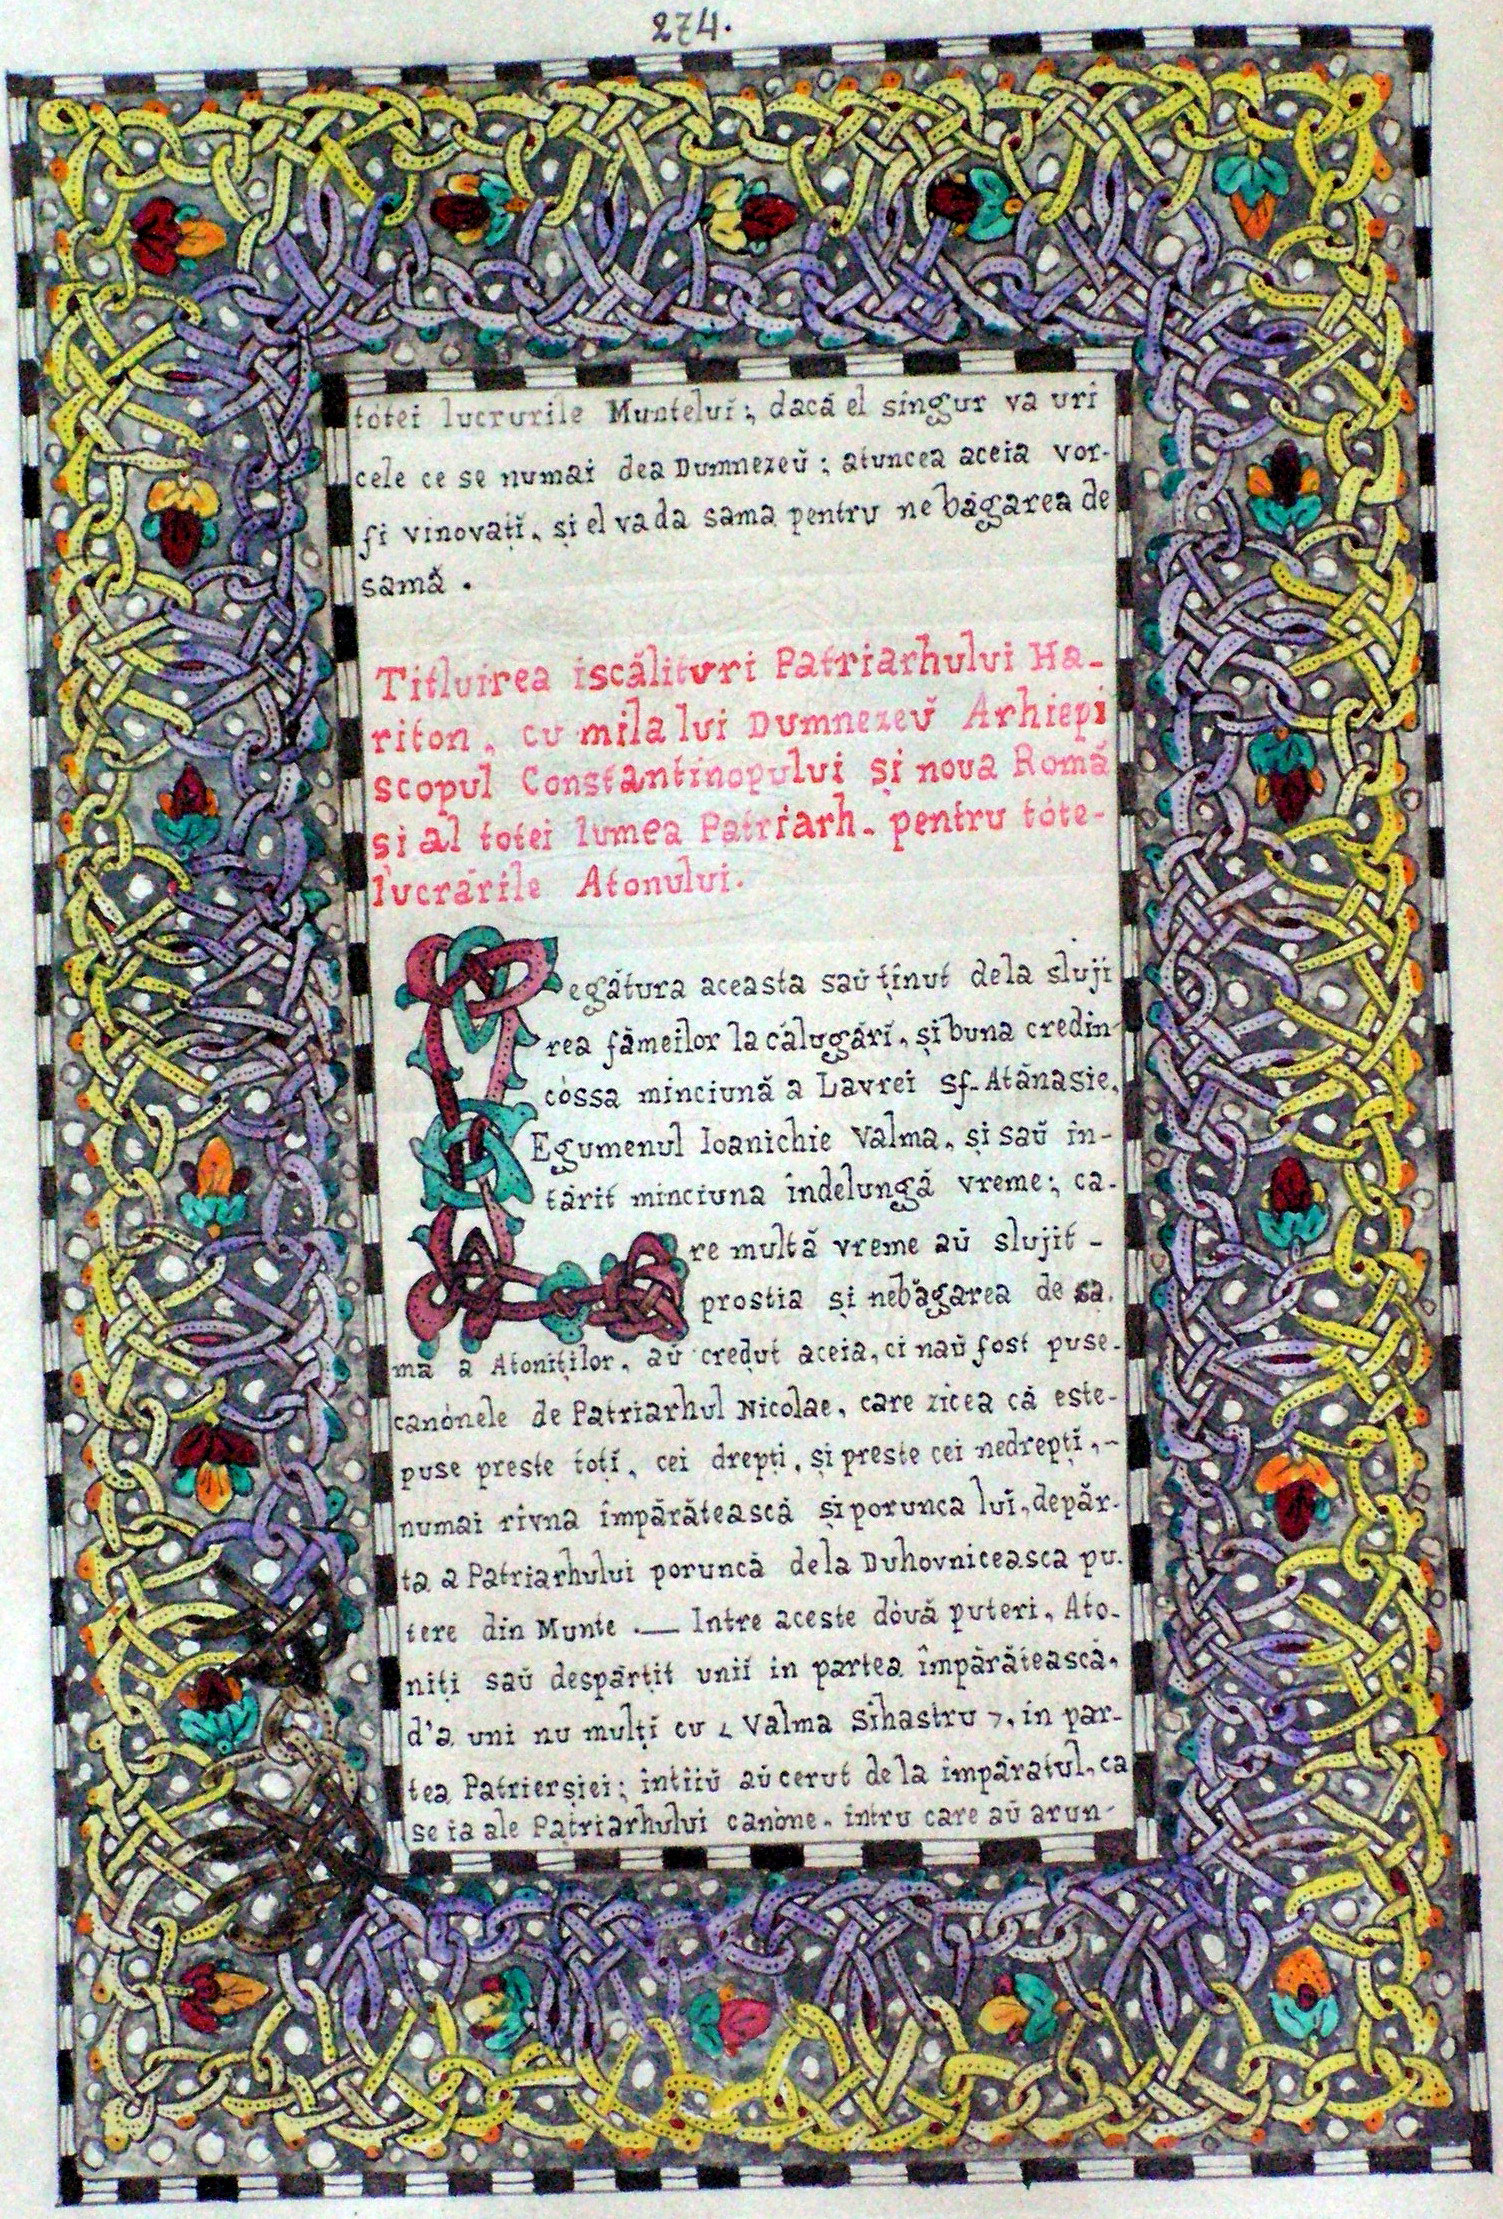 274.
totei lucrurile Muntelui:, dacă el singur va uri
cele ce se numai dea Dumnezeŭ: atuncea aceia vor-
fi vinovațĭ, și el va da sama pentru nebăgarea de
samă.
Titluirea iscăliturĭ Patriarhului Ha-
riton, cu mila lui Dumnezeŭ Arhiepi
scopul Constantinopului și noua Romă
si al totei lumea Patriarh. pentru tóte-
lucrările Atonului.
Legătura aceasta saŭ ținut dela sluji
rea fămeilor la călugărĭ, și buna credin
còssa minciună a Lavrei sf. Atănasie,
Egumenul Ioanichie Valma, și saŭ în-
tărit minciuna îndelungă vreme:, ca-
re multă vreme aŭ slujit-
prostia și nebăgarea de sa.
ma a Atoniților, aŭ crețut aceia, ci naŭ fost puse.
canónele de Patriarhul Nicolae, care zicea că este-
puse preste toțĭ, cei drepțĭ, și preste cei nedrepțĭ,-
numai rîvna împărătească și porunca luĭ, depăr-
ta a Patriarhului poruncă dela Duhovniceasca pu.
tere din Munte.— Intre aceste dóvă puteri, Ato-
niți saŭ despărțit uniĭ in partea împărătească,
d'a uni nu mulțĭ cu < Valma Sihastru >, in par-
tea Patrierșiei; întiiŭ aŭ cerut de la împăratul, ca
se ia ale Patriarhului canóne. intru care aŭ arun-